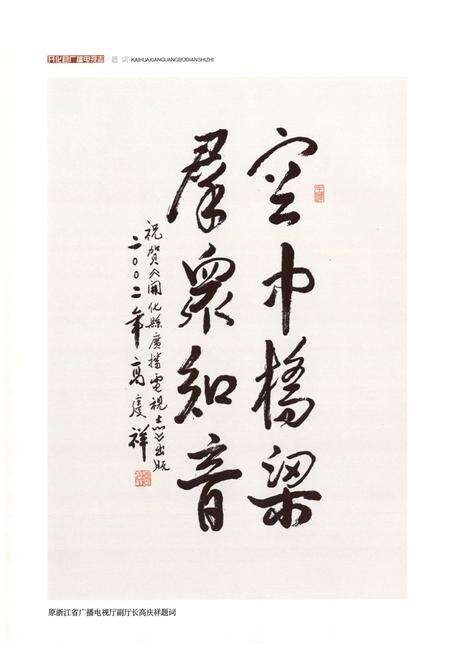 开化县广播电视志
题词 KAIHUAXIANGUANGBODIANSHIZHI
空中橋梁
羣眾知音
祝賀《開化縣廣播電視志》出版
二〇〇二年高慶祥
原浙江省广播电视厅副厅长高庆祥题词